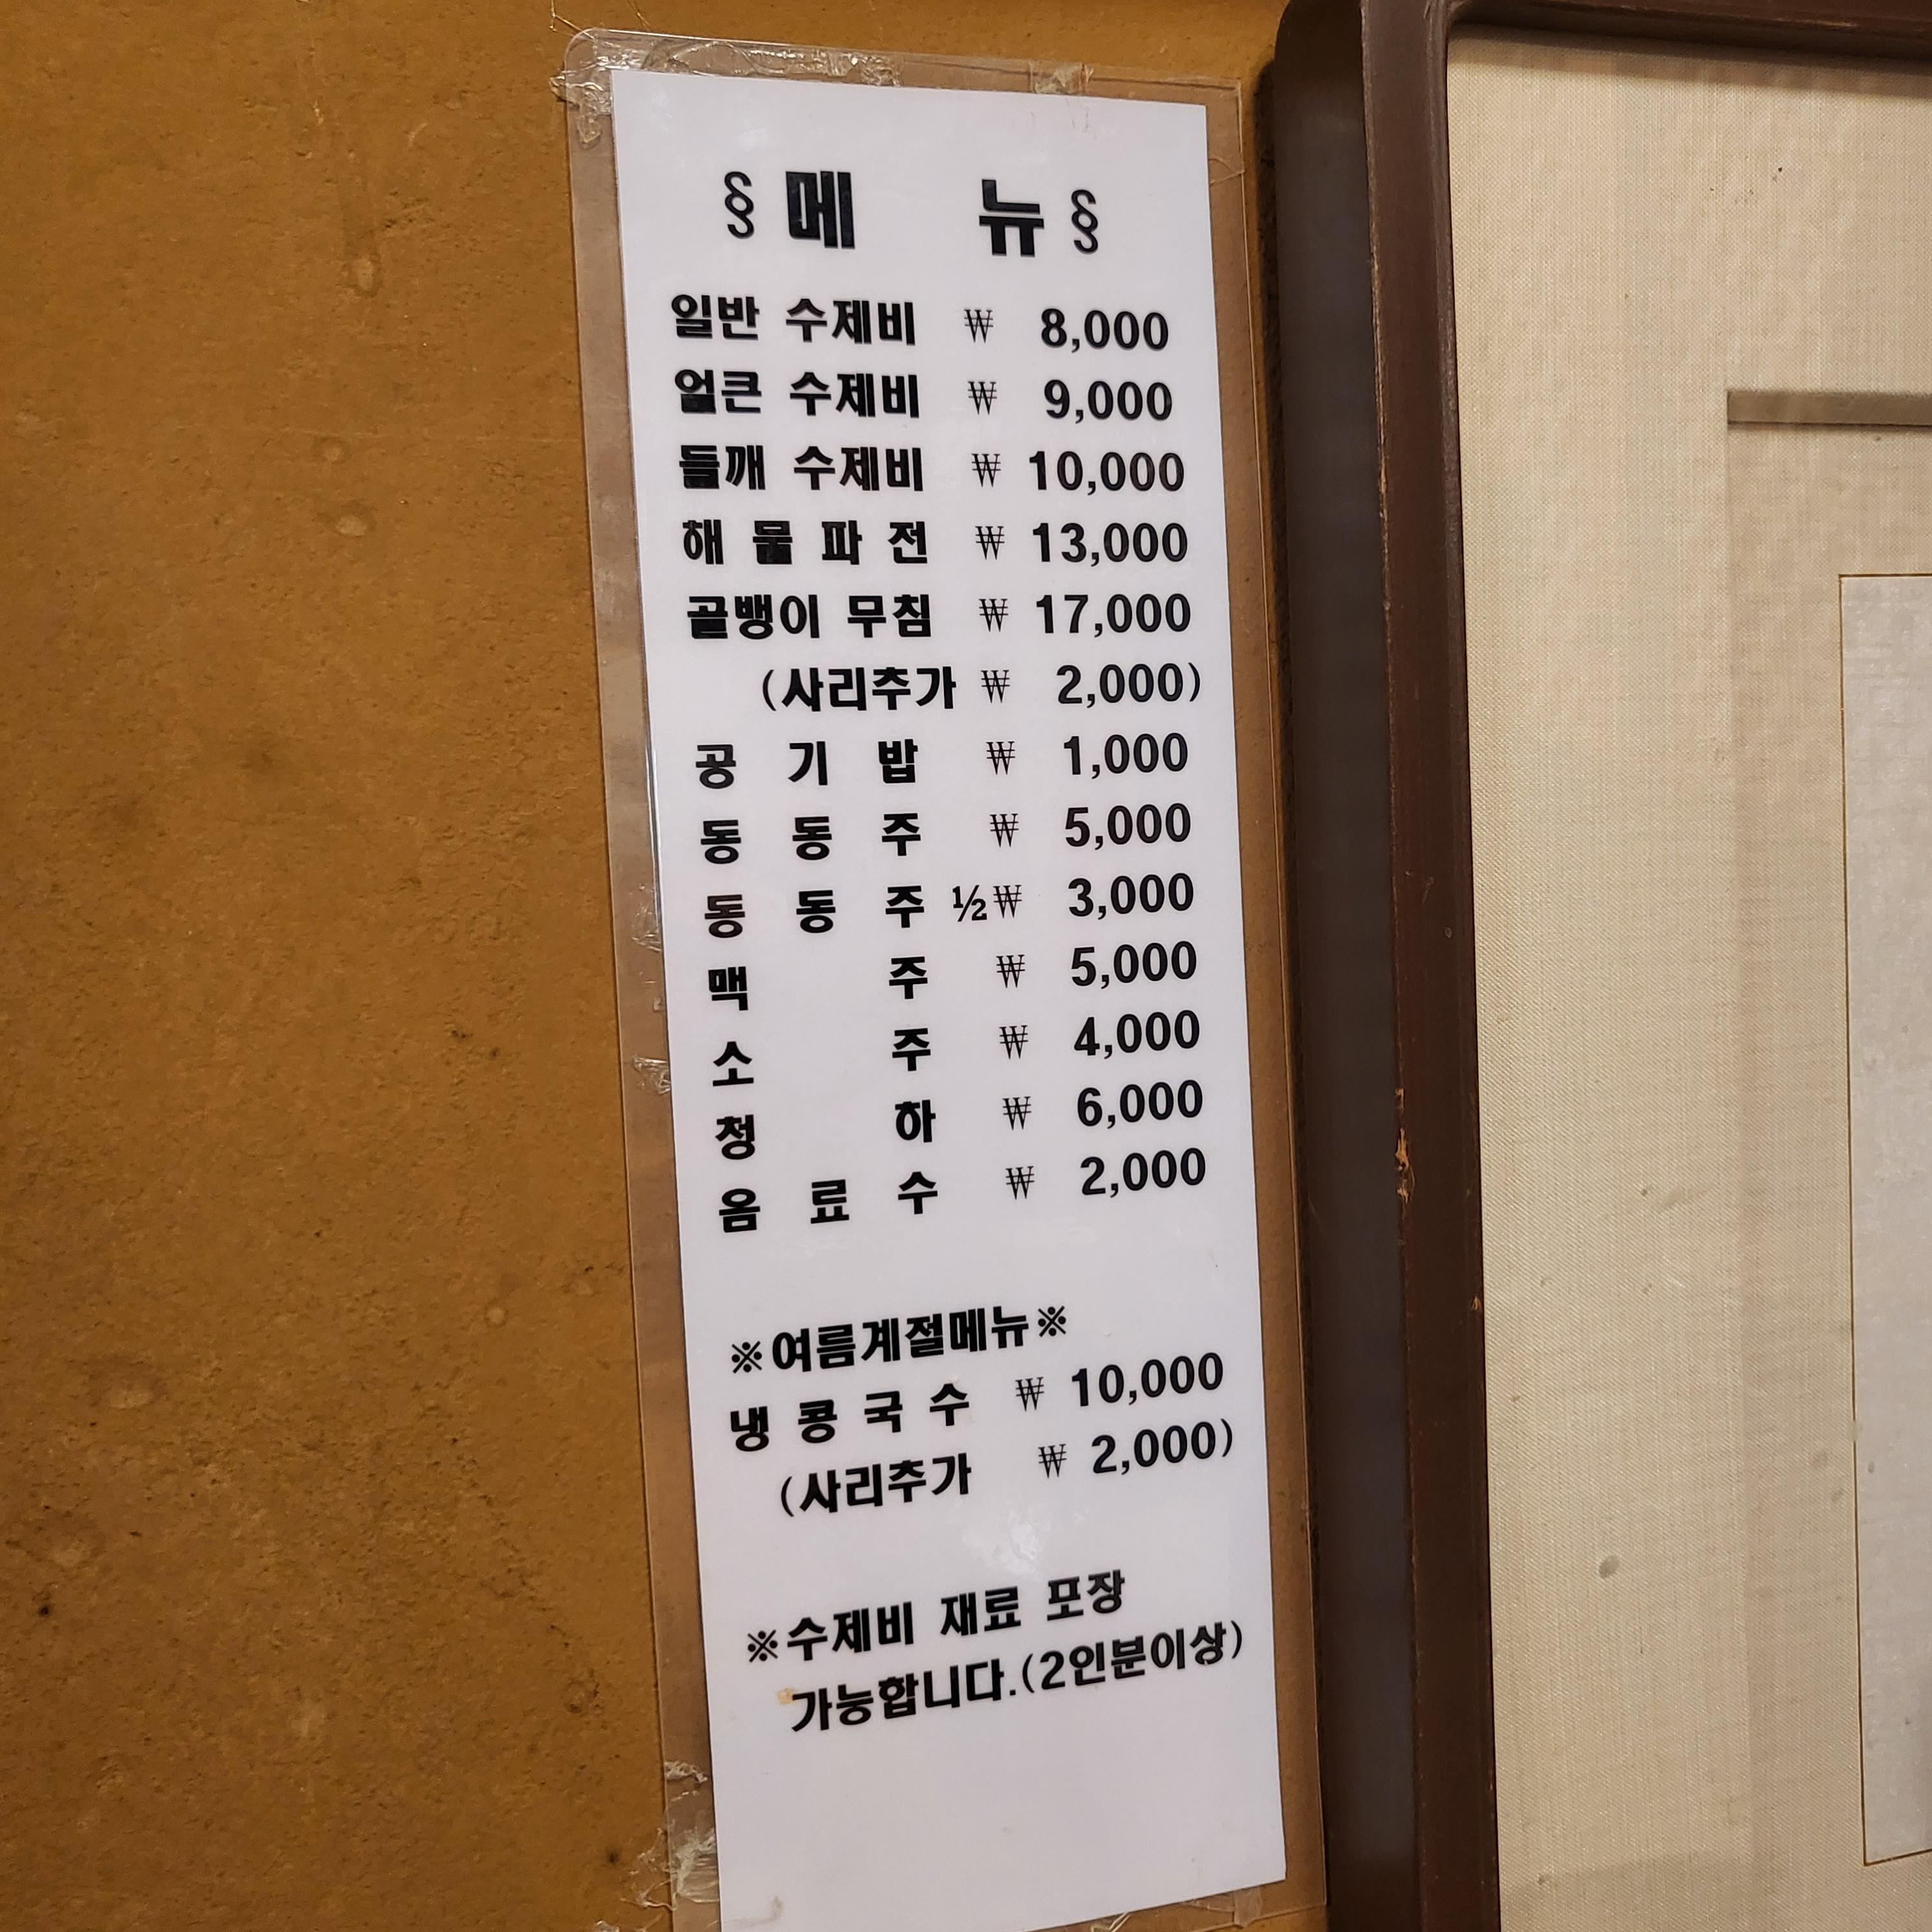 § 메 뉴 §
일반 수제비 ₩ 8,000
얼큰 수제비 ₩ 9,000
들깨 수제비 ₩ 10,000
해 물 파 전 ₩ 13,000
골뱅이 무침 ₩ 17,000
(사리추가 ₩ 2,000)
공 기 밥 ₩ 1,000
동 동 주 ₩ 5,000
동 동 주 ½ ₩ 3,000
맥 주 ₩ 5,000
소 주 ₩ 4,000
청 하 ₩ 6,000
음 료 수 ₩ 2,000
※여름계절메뉴※
냉 콩 국 수 ₩ 10,000
(사리추가 ₩ 2,000)
※수제비 재료 포장
가능합니다.(2인분이상)